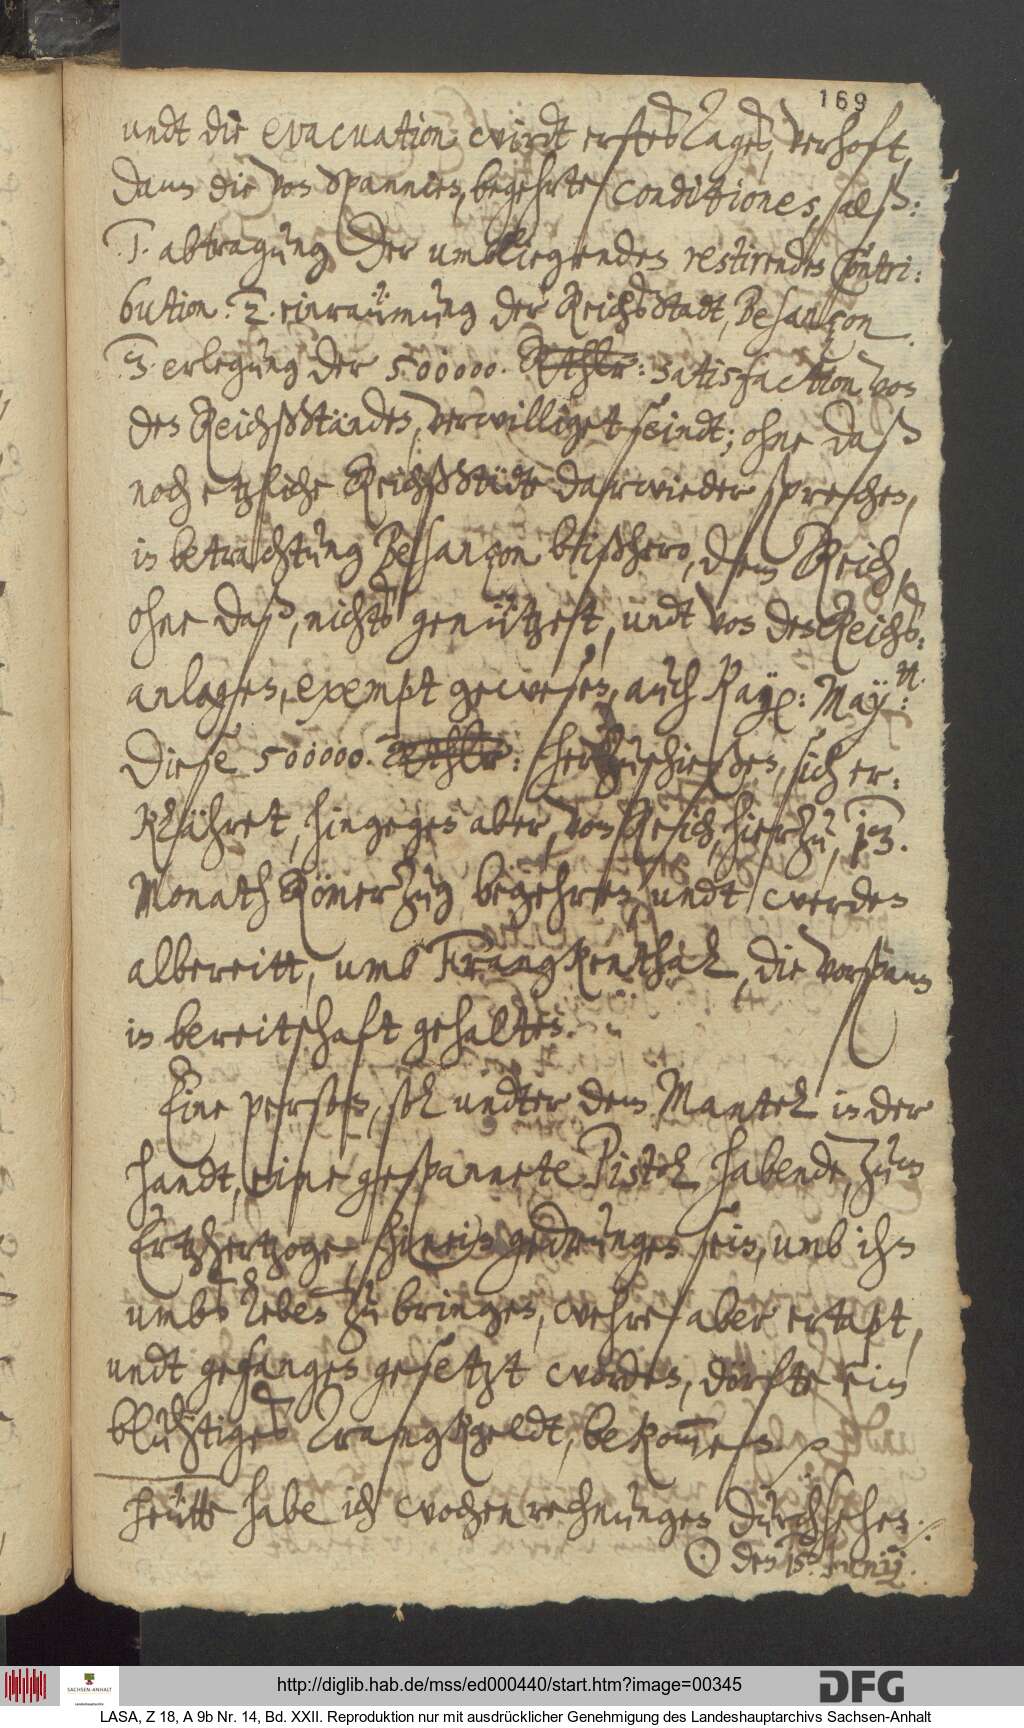 169
undt die evacuation wirdt erstes Tages, verhoft,
dann die von Spannien, begehrte conditiones, alß:
1. abtragung der umbliegenden restirenden Contri:
bution. 2. einraümung der ReichsStadt, Besançon
3. erlegung der 500000. Rthlr: satisfaction von
den ReichßStänden, verwilliget seindt; ohne daß
noch etzliche ReichßStädte darwieder sprechen,
in betrachtung Besançon bißhero, dem Reich,
ohne daß, nichts genützest, undt von den Reichs:
anlagen, exempt gewesen, auch Kayß: May:
diese 500000. Rthlr: herzuschießen, sich er:
klähret, hingegen aber, vom Reich, hierzu, 13.
Monath Römerzug begehren, undt werden
albereitt, umb Frangkenthal, die vorspann
in bereitschaft gehalten.
Eine person, sol undter dem Mantel in der
handt, eine gespannete Pistol habende, zum
Ertzhertzoge, hinein gedrungen sein, umb ihn
umbs leben zu bringen, wehre aber ertapt,
undt gefangen gesetzt worden, dörfte ein
bluhtiges Trangkgeldt, bekommen.
Heütte habe ich wochenrechnungen durchsehen.
☉ den 15. Junij.
http://diglib.hab.de/mss/ed000440/start.htm?image=00345
DFG
SACHSEN-ANHALT
LASA, Z 18, A 9b Nr. 14, Bd. XXII. Reproduktion nur mit ausdrücklicher Genehmigung des Landeshauptarchivs Sachsen-Anhalt